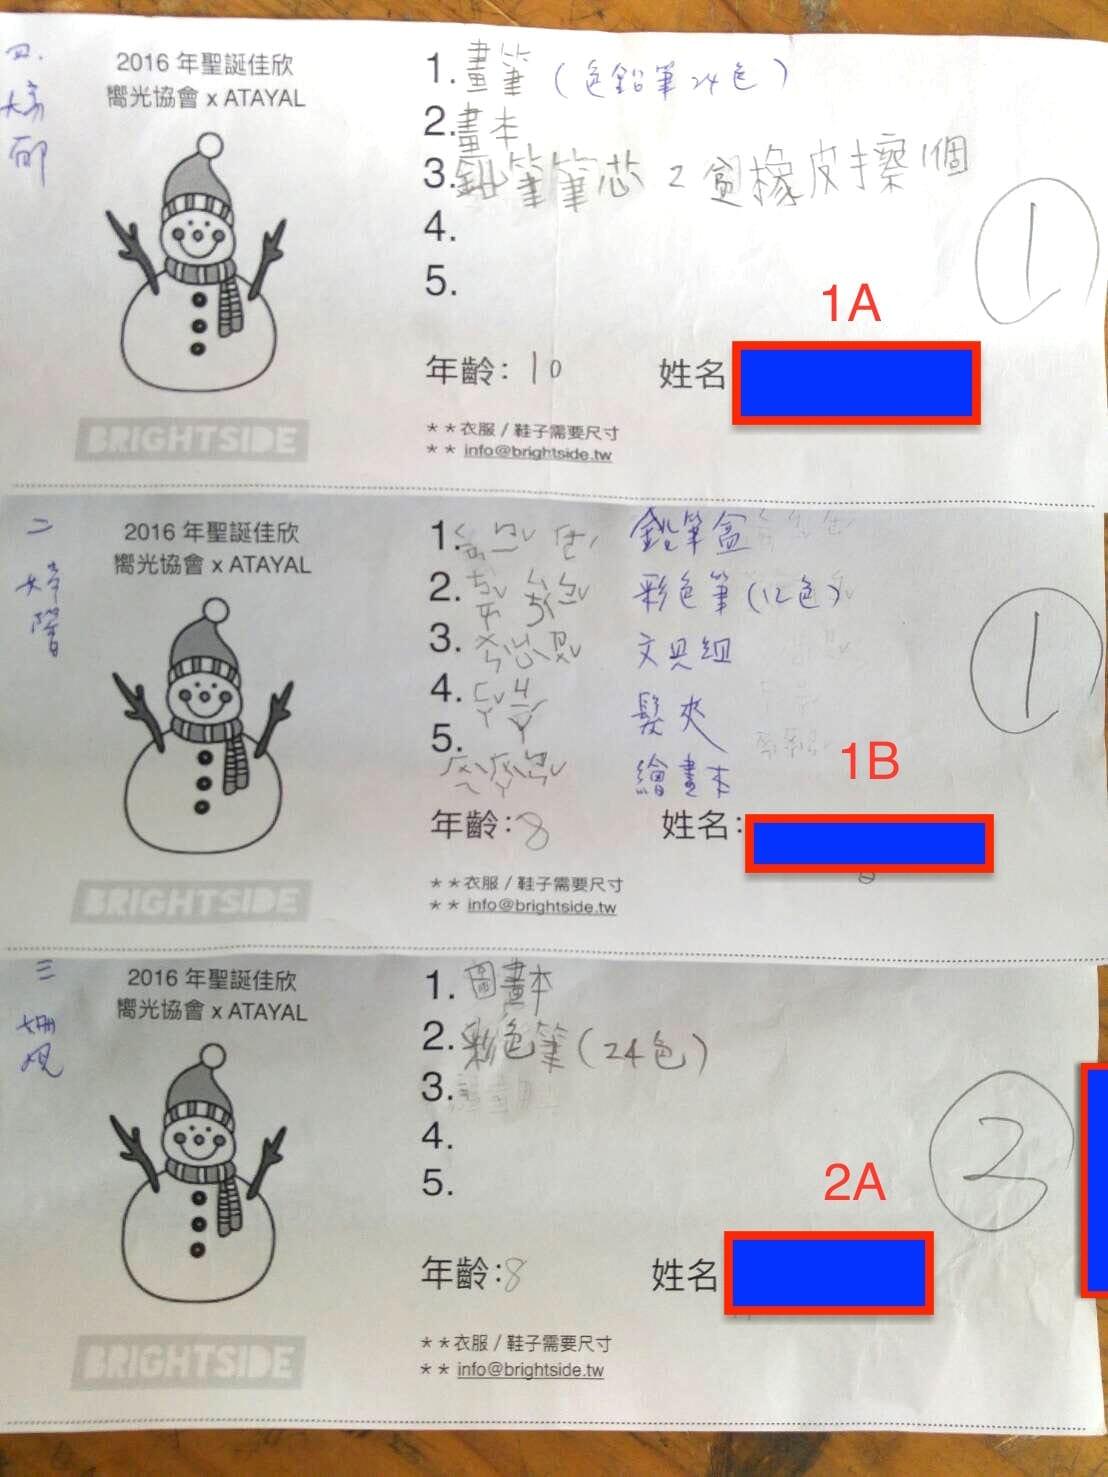 四.
2016 年聖誕佳欣
嚮光協會 x ATAYAL
1. 畫筆 (色鉛筆24色)
2. 畫本
3. 鉛筆筆芯 2盒橡皮擦1個
4.
5.
1
1A
年齡: 10
姓名
BRIGHTSIDE
**衣服 / 鞋子需要尺寸
** info@brightside.tw
二
2016 年聖誕佳欣
嚮光協會 x ATAYAL
1. 鉛筆盒
2. 彩色筆(12色)
3. 文具組
4. 髮夾
5. 繪畫本
1
1B
年齡: 8
姓名:
BRIGHTSIDE
**衣服 / 鞋子需要尺寸
** info@brightside.tw
三
2016 年聖誕佳欣
嚮光協會 x ATAYAL
1. 圖畫本
2. 彩色筆(24色)
3.
4.
5.
2
2A
年齡: 8
姓名
BRIGHTSIDE
**衣服 / 鞋子需要尺寸
** info@brightside.tw